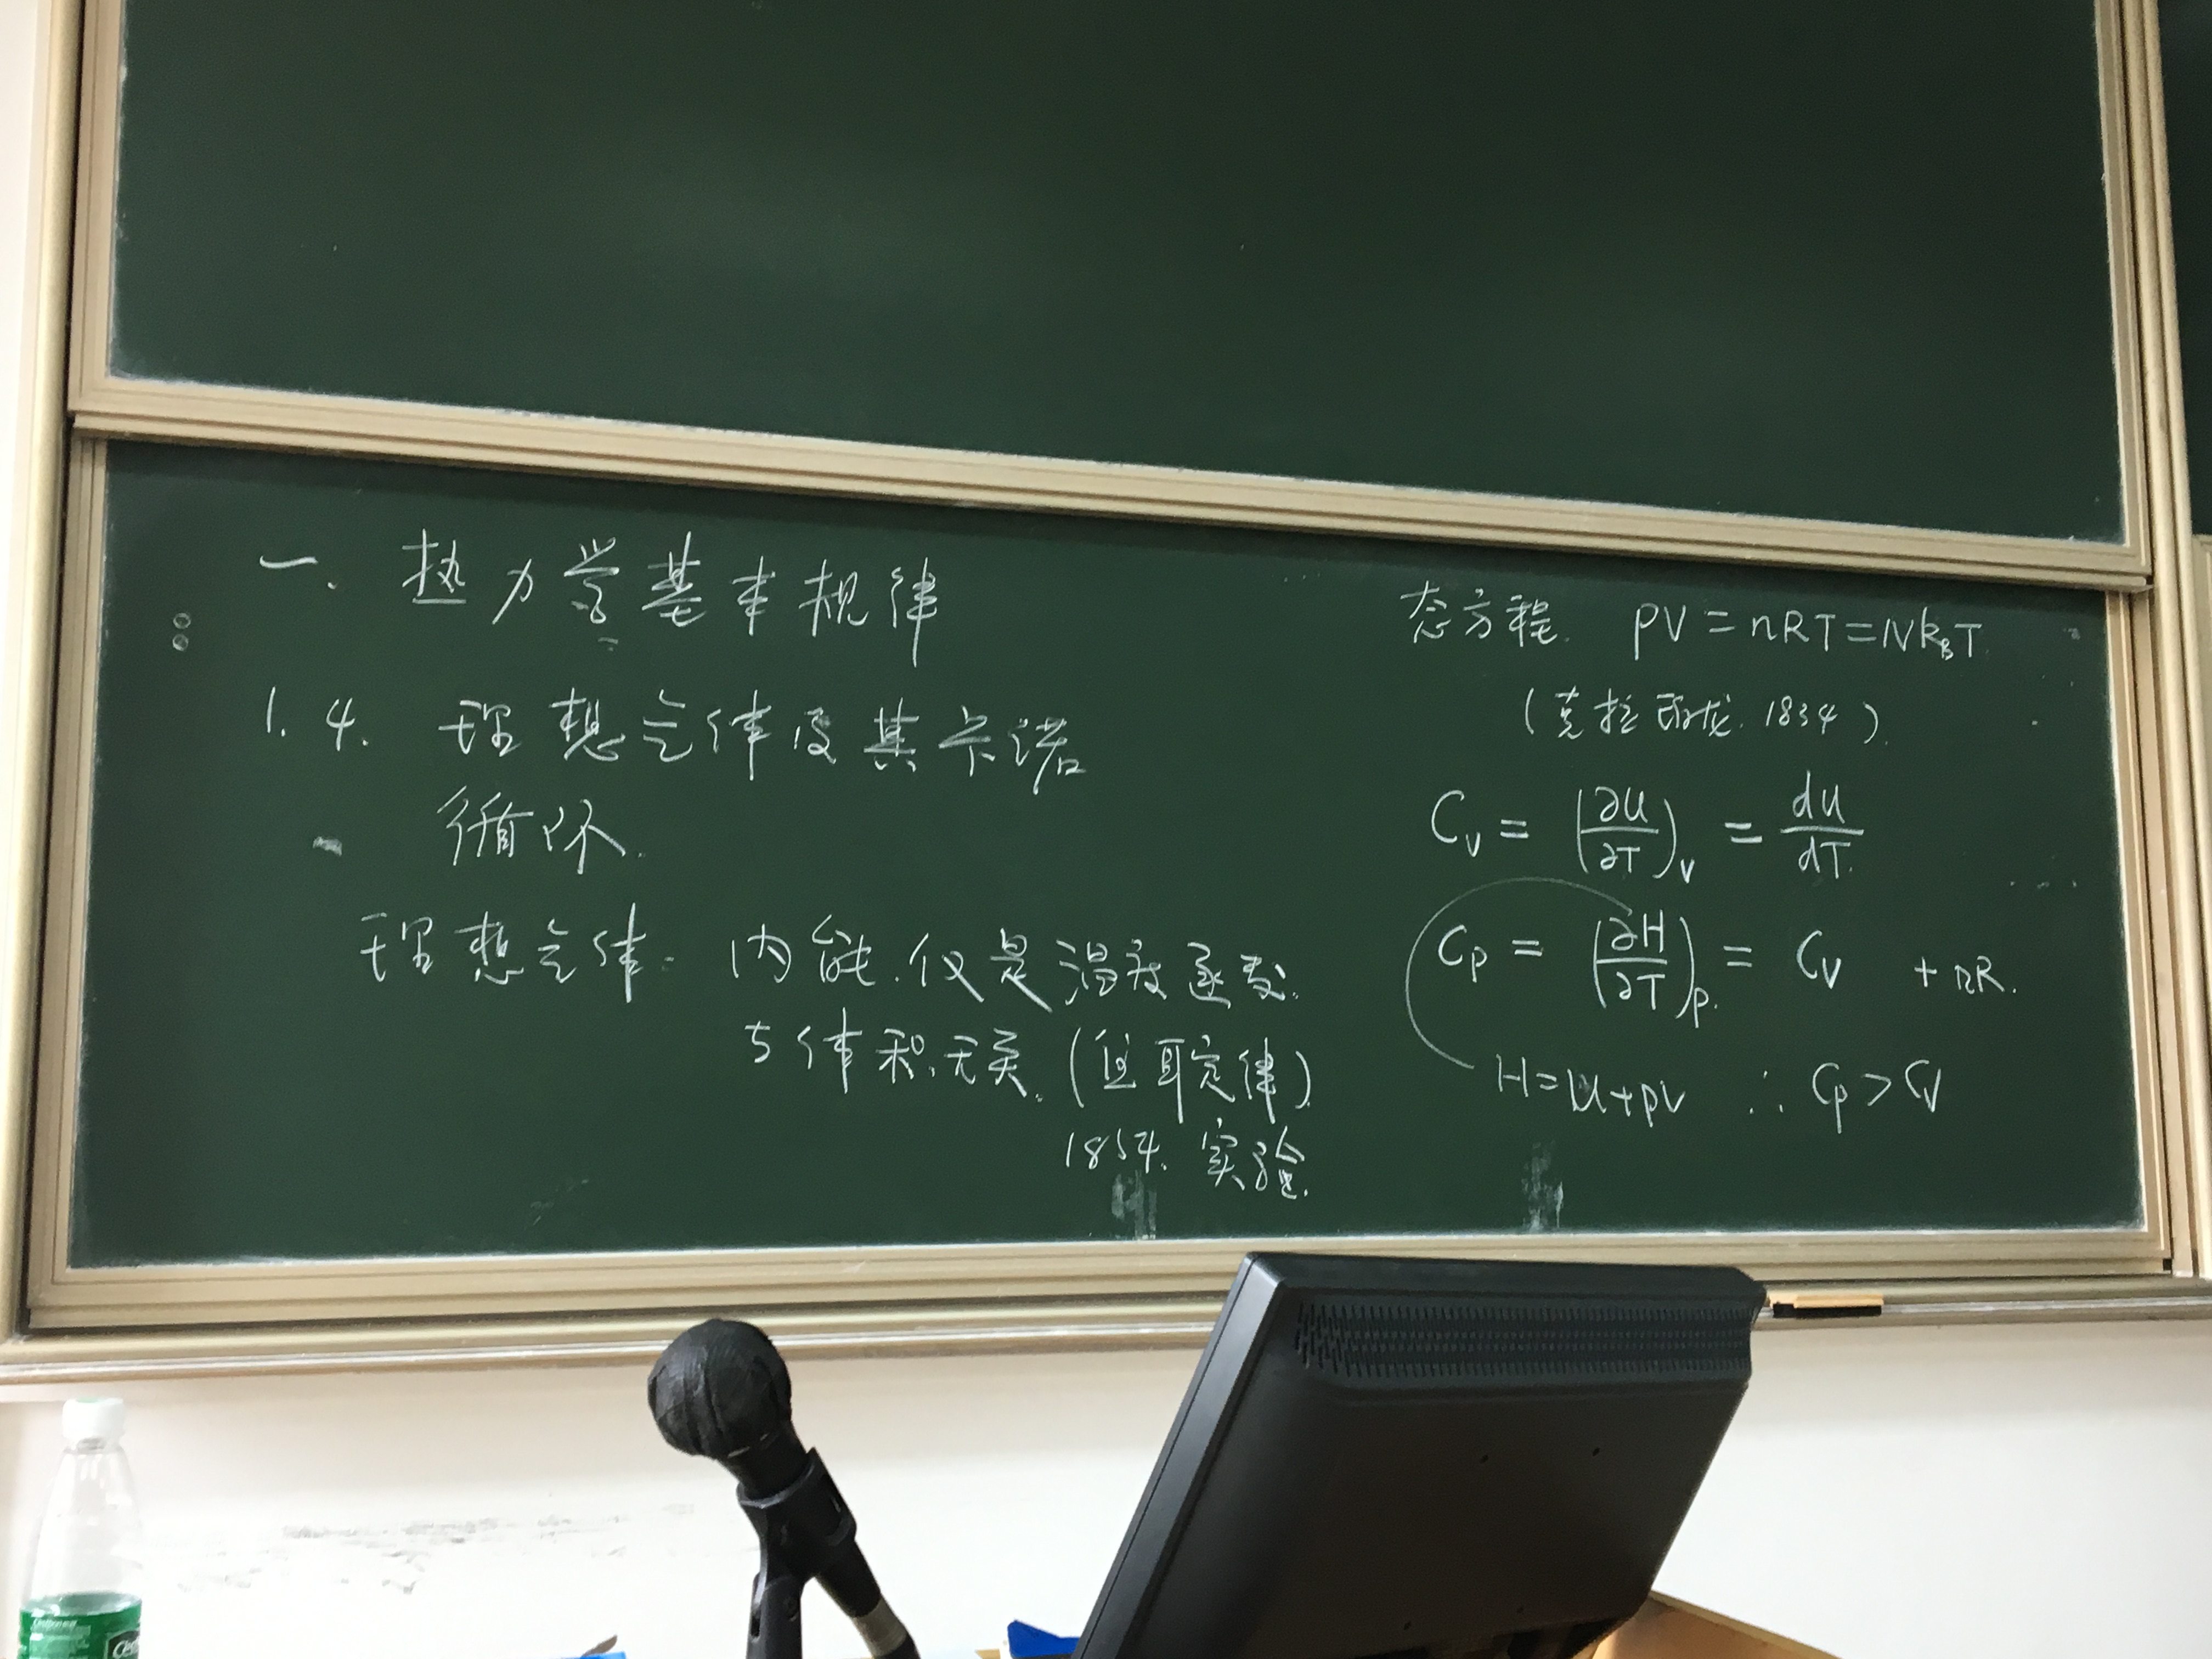 一. 热力学基本规律
1.4. 理想气体及其卡诺
循环.
理想气体. 内能.仅是温度函数.
与体积无关.(焦耳定律)
1854. 实验.
态方程. PV=nRT=Nk_BT
(克拉珀龙.1834).
C_V = (∂U/∂T)_V = dU/dT.
C_P = (∂H/∂T)_P. = C_V + nR.
H=U+PV ∴ C_P > C_V